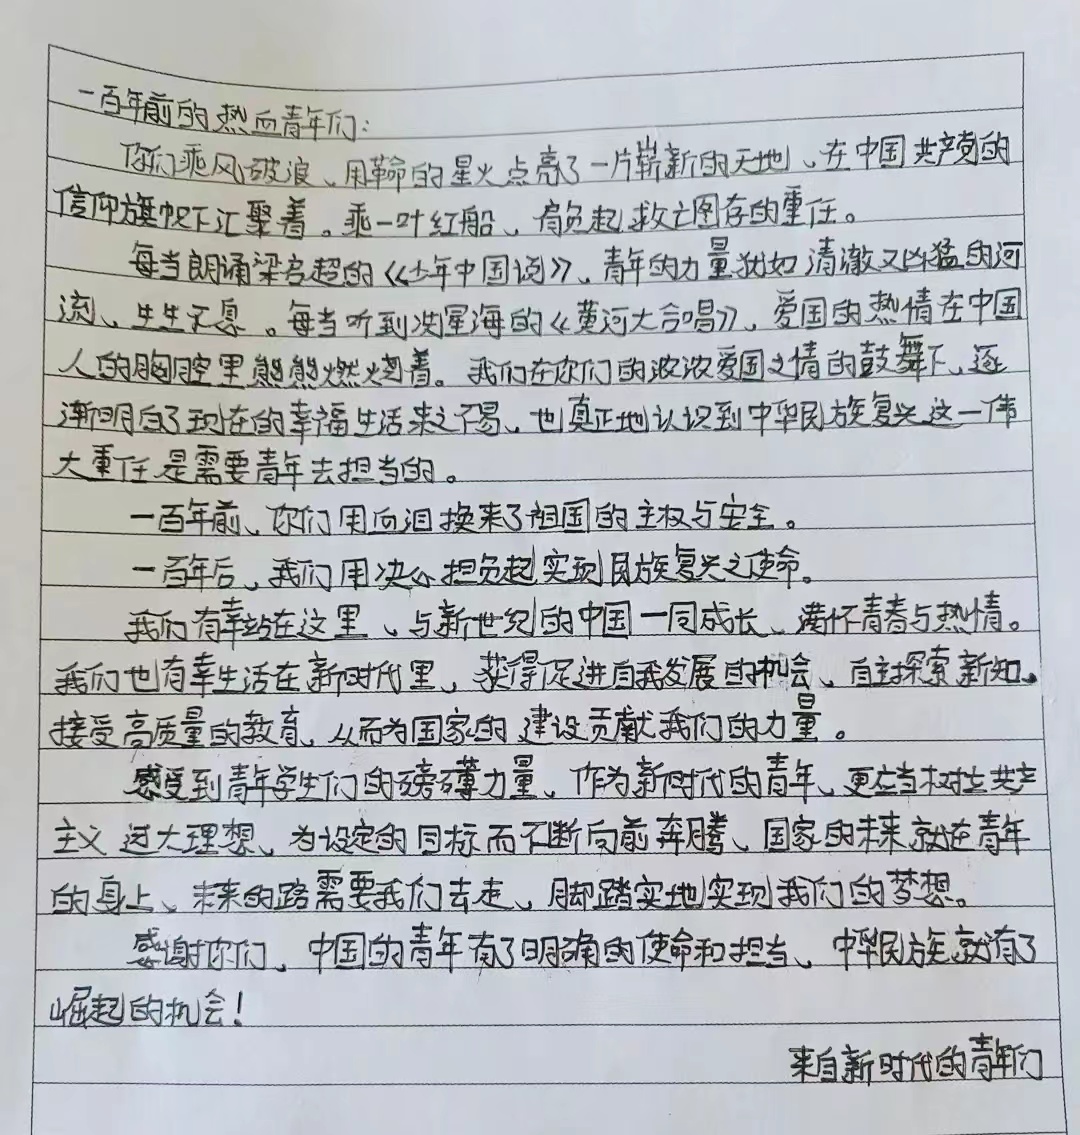 一百年前的热血青年们:
你们乘风破浪、用革命的星火点亮了一片崭新的天地、在中国共产党的
信仰旗帜下汇聚着。乘一叶红船、肩负起救亡图存的重任。
每当朗诵梁启超的《少年中国说》、青年的力量犹如清澈又凶猛的河
流、生生不息。每当听到冼星海的《黄河大合唱》、爱国的热情在中国
人的胸腔里熊熊燃烧着。我们在你们的浓浓爱国之情的鼓舞下、逐
渐明白了现在的幸福生活来之不易、也真正地认识到中华民族复兴这一伟
大重任是需要青年去担当的。
一百年前、你们用血泪换来了祖国的主权与安全。
一百年后、我们用决心担负起实现民族复兴之使命。
我们有幸站在这里、与新世纪的中国一同成长、满怀青春与热情。
我们也有幸生活在新时代里、获得促进自我发展的机会、自主探索新知、
接受高质量的教育、从而为国家的建设贡献我们的力量。
感受到青年学生们的磅礴力量、作为新时代的青年、更应当树立共产
主义远大理想、为设定的目标而不断向前奔腾、国家的未来就在青年
的身上、未来的路需要我们去走、脚踏实地实现我们的梦想。
感谢你们、中国的青年有了明确的使命和担当、中华民族就有了
崛起的机会!
来自新时代的青年们